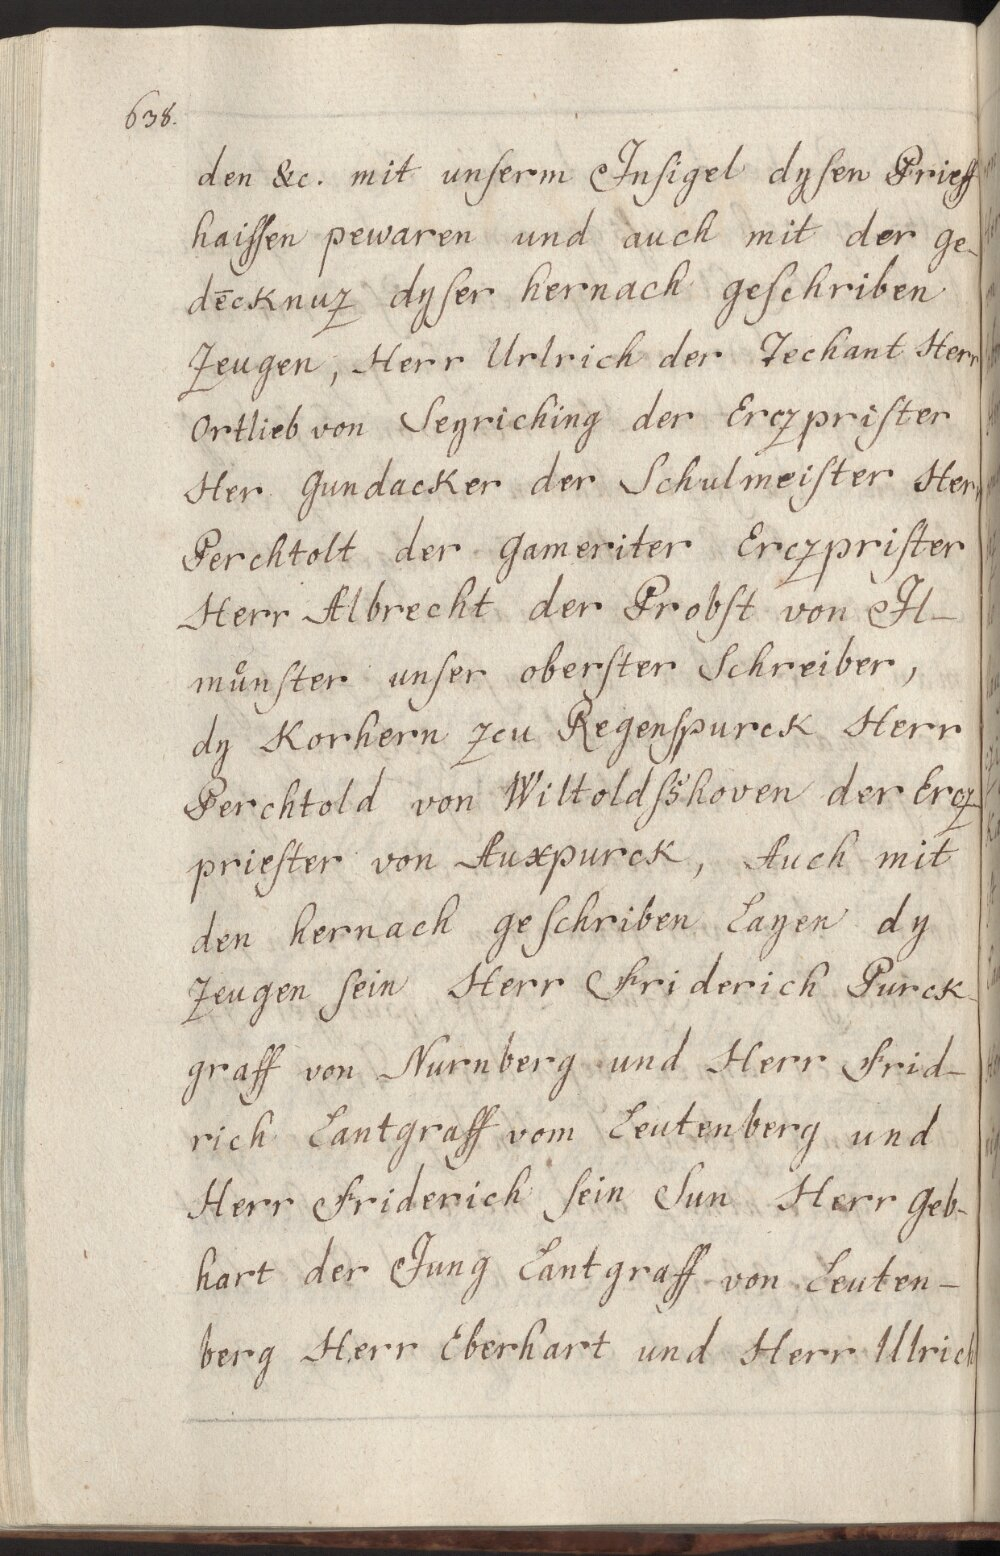 638.
den &c. mit unserm Insigel dysen Prieff
haissen pewaren und auch mit der ge-
dēcknuz dyser hernach geschriben
Zeugen, Herr Urlrich der Techant Herr
Ortlieb von Seyriching der Erczprister
Her Gundacker der Schulmeister Herr
Perchtolt der Gameriter Erczprister
Herr Albrecht der Probst von Il-
můnster unser oberster Schreiber,
dy Korhern zcu Regenspurck Herr
Perchtold von Wiltoldsshoven der Ercz
priester von Auxpurck, Auch mit
den hernach geschriben Layen dy
Zeugen sein Herr Friderich Purck-
graff von Nurnberg und Herr Frid-
rich Lantgraff vom Leutenberg und
Herr Friderich sein Sun Herr Geb-
hart der Jung Lantgraff von Leuten-
berg Herr Eberhart und Herr Ulrich